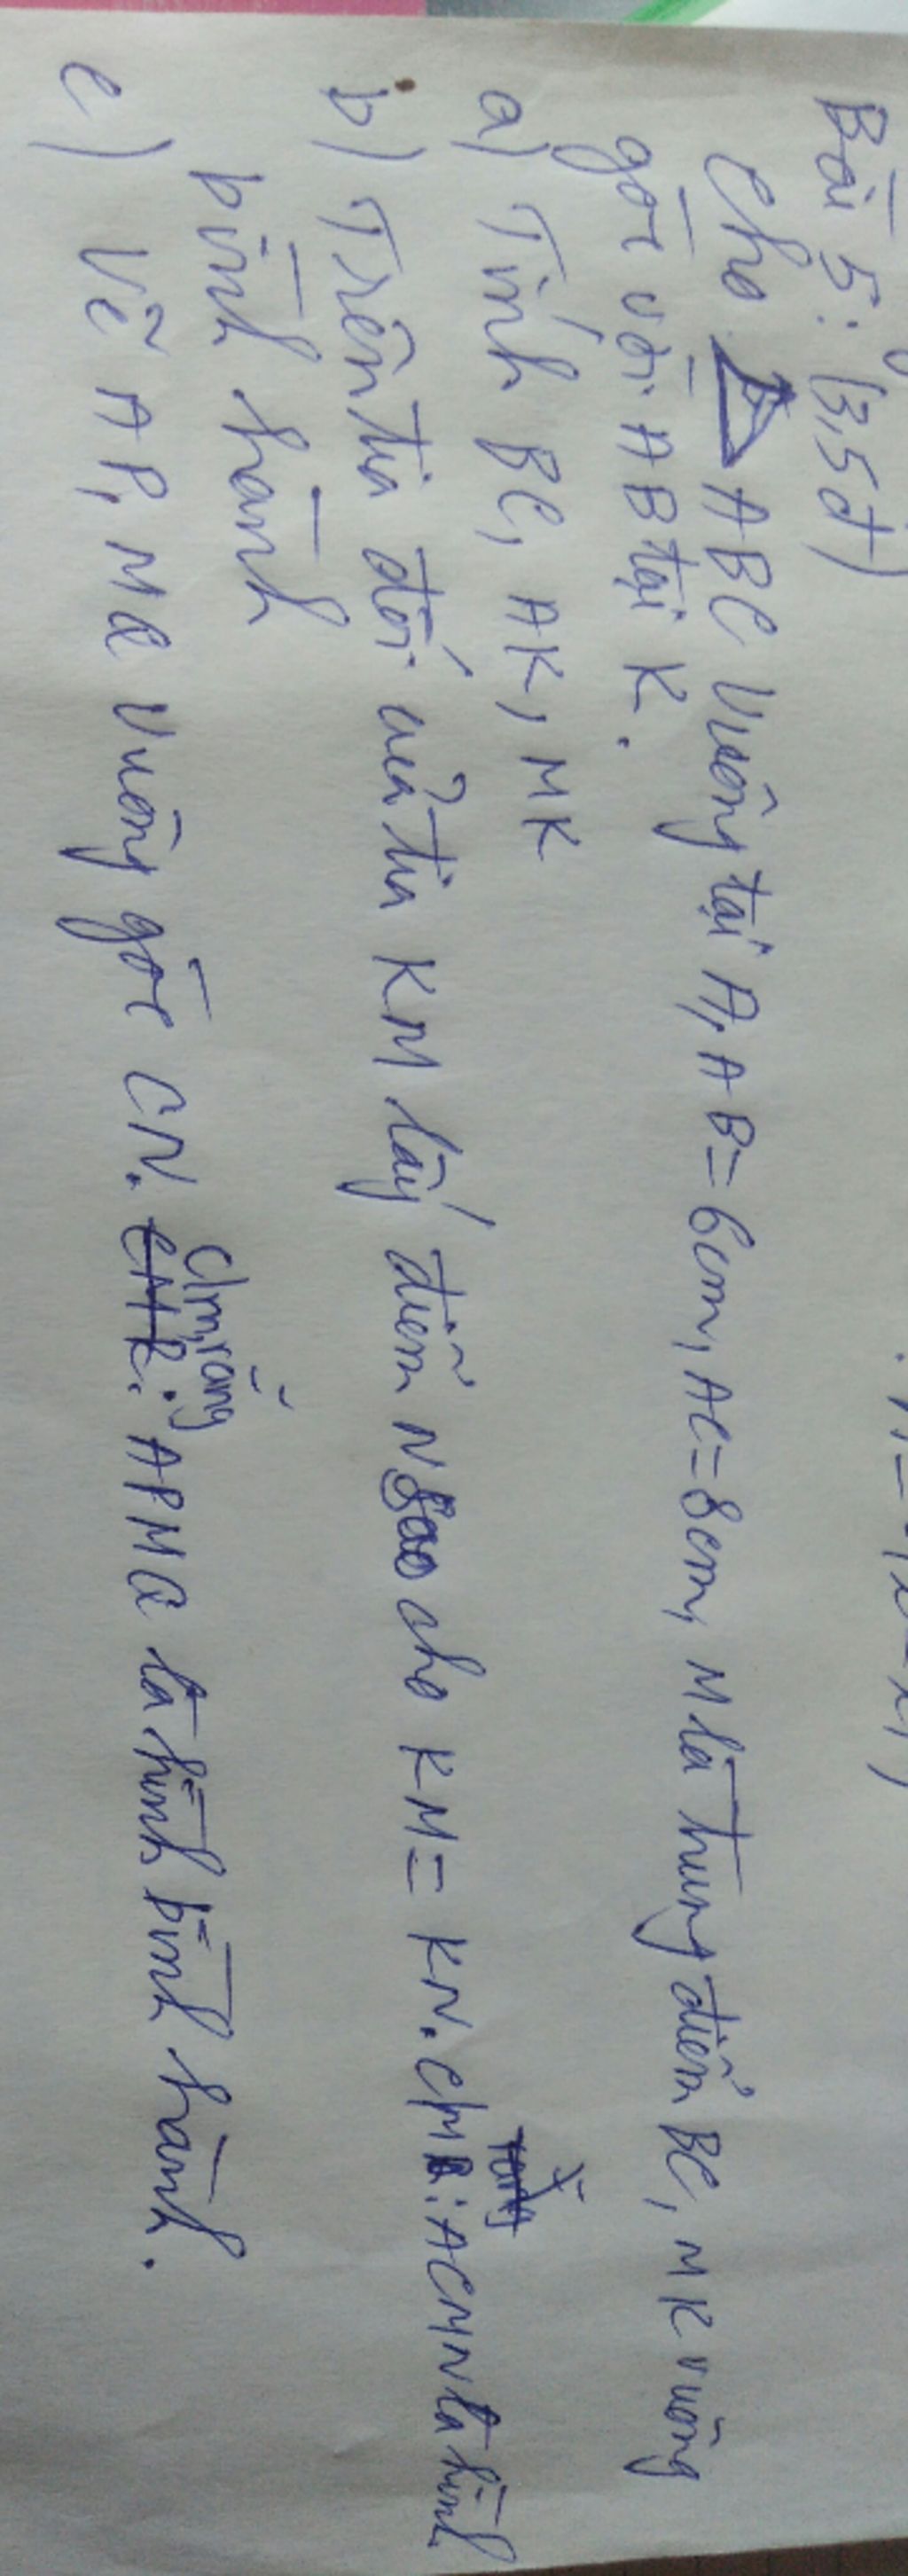 Bài 5: (3,5đ)
Cho △ ABC vuông tại A, AB = 6cm, AC = 8cm, M là trung điểm BC, MK vuông
góc với AB tại K.
a) Tính BC, AK, MK
b) Trên tia đối của tia KM lấy điểm N sao cho KM = KN. CMR: ACMN là hình
bình hành
c) Vẽ AP, MQ vuông góc CN. Cm rằng: APMQ là hình bình hành.